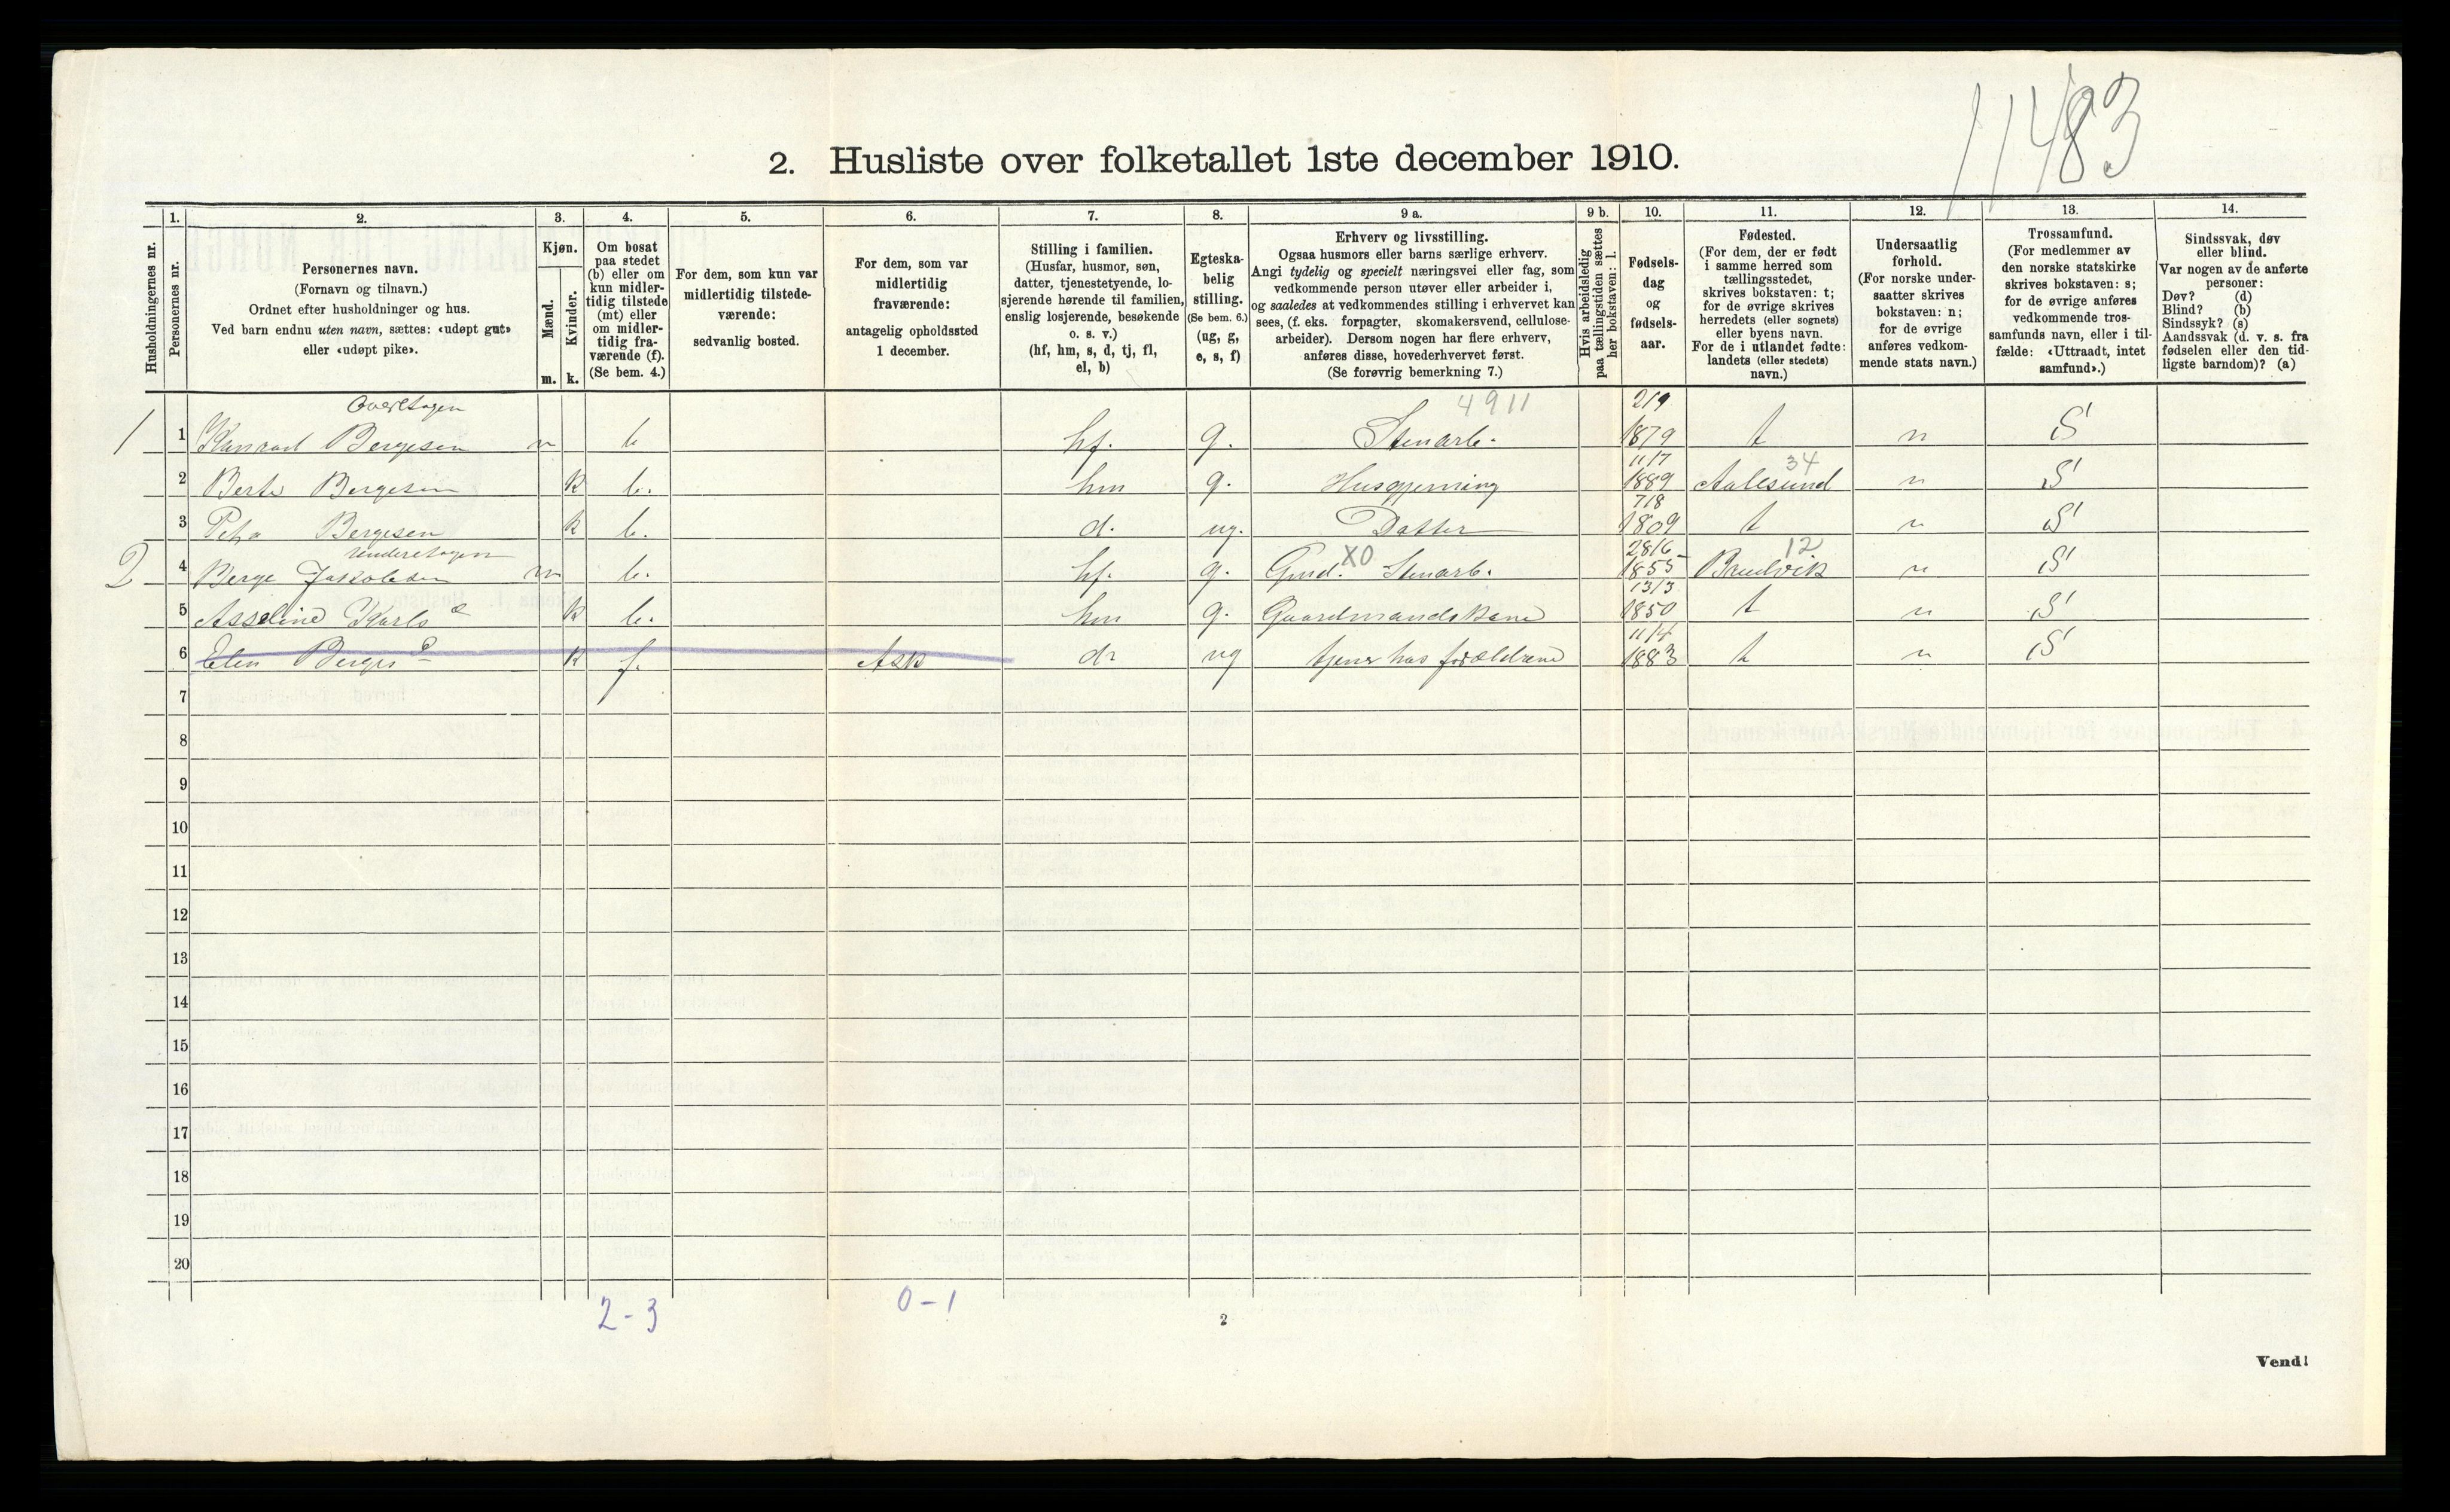 11483
2. Husliste over folketallet 1ste december 1910.
1. 2. 3. 4. 5. 6. 7. 8. 9 a. 9 b. 10. 11. 12. 13. 14.
Husholdningernes nr.
Personernes nr.
Personernes navn.
(Fornavn og tilnavn.)
Ordnet efter husholdninger og hus.
Ved barn endnu uten navn, sættes: «udøpt gut»
eller «udøpt pike».
Kjøn.
Mænd.
Kvinder.
m. k.
Om bosat
paa stedet
(b) eller om
kun midler-
tidig tilstede
(mt) eller
om midler-
tidig fra-
værende (f).
(Se bem. 4.)
For dem, som kun var
midlertidig tilstede-
værende:
sedvanlig bosted.
For dem, som var
midlertidig
fraværende:
antagelig opholdssted
1 december.
Stilling i familien.
(Husfar, husmor, søn,
datter, tjenestetyende, lo-
sjerende hørende til familien,
enslig losjerende, besøkende
o. s. v.)
(hf, hm, s, d, tj, fl,
el, b)
Egteska-
belig
stilling.
(Se bem. 6.)
(ug, g,
e, s, f)
Erhverv og livsstilling.
Ogsaa husmors eller barns særlige erhverv.
Angi tydelig og specielt næringsvei eller fag, som
vedkommende person utøver eller arbeider i,
og saaledes at vedkommendes stilling i erhvervet kan
sees, (f. eks. forpagter, skomakersvend, cellulose-
arbeider). Dersom nogen har flere erhverv,
anføres disse, hovederhvervet først.
(Se forøvrig bemerkning 7.)
Hvis arbeidsledig
paa tællingstiden sættes
her bokstaven: l.
Fødsels-
dag
og
fødsels-
aar.
Fødested.
(For dem, der er født
i samme herred som
tællingsstedet,
skrives bokstaven: t;
for de øvrige skrives
herredets (eller sognets)
eller byens navn.
For de i utlandet fødte:
landets (eller stedets)
navn.)
Undersaatlig
forhold.
(For norske under-
saatter skrives
bokstaven: n;
for de øvrige
anføres vedkom-
mende stats navn.)
Trossamfund.
(For medlemmer av
den norske statskirke
skrives bokstaven: s;
for de øvrige anføres
vedkommende tros-
samfunds navn, eller i til-
fælde: «Uttraadt, intet
samfund».)
Sindssvak, døv
eller blind.
Var nogen av de anførte
personer:
Døv? (d)
Blind? (b)
Sindssyk? (s)
Aandssvak (d. v. s. fra
fødselen eller den tid-
ligste barndom)? (a)
4911 21/9
1 1 Bergesen m b hf. g. Stenarb. 1879 t n S
11/7 34
2 Berte Bergesen k b. hm g. Husgjerning 1889 Aalesund n S
7/8
3 Petra Bergesen k b. d. ug. Datter 1809 t n S
XO 28/6 12
2 4 Berge Jakobsen m b. hf. g. Gmd. Stenarb. 1855 Bruvik n S
13/3
5 Asseline Karls d k b. hm g. Gaardmandskone 1850 t n S
11/4
6 Elen Berges d k f. Ask d ug tjener hos forældrene 1883 t n S
7
8
9
10
11
12
13
14
15
16
17
18
19
20
2-3 0-1
2
Vend!